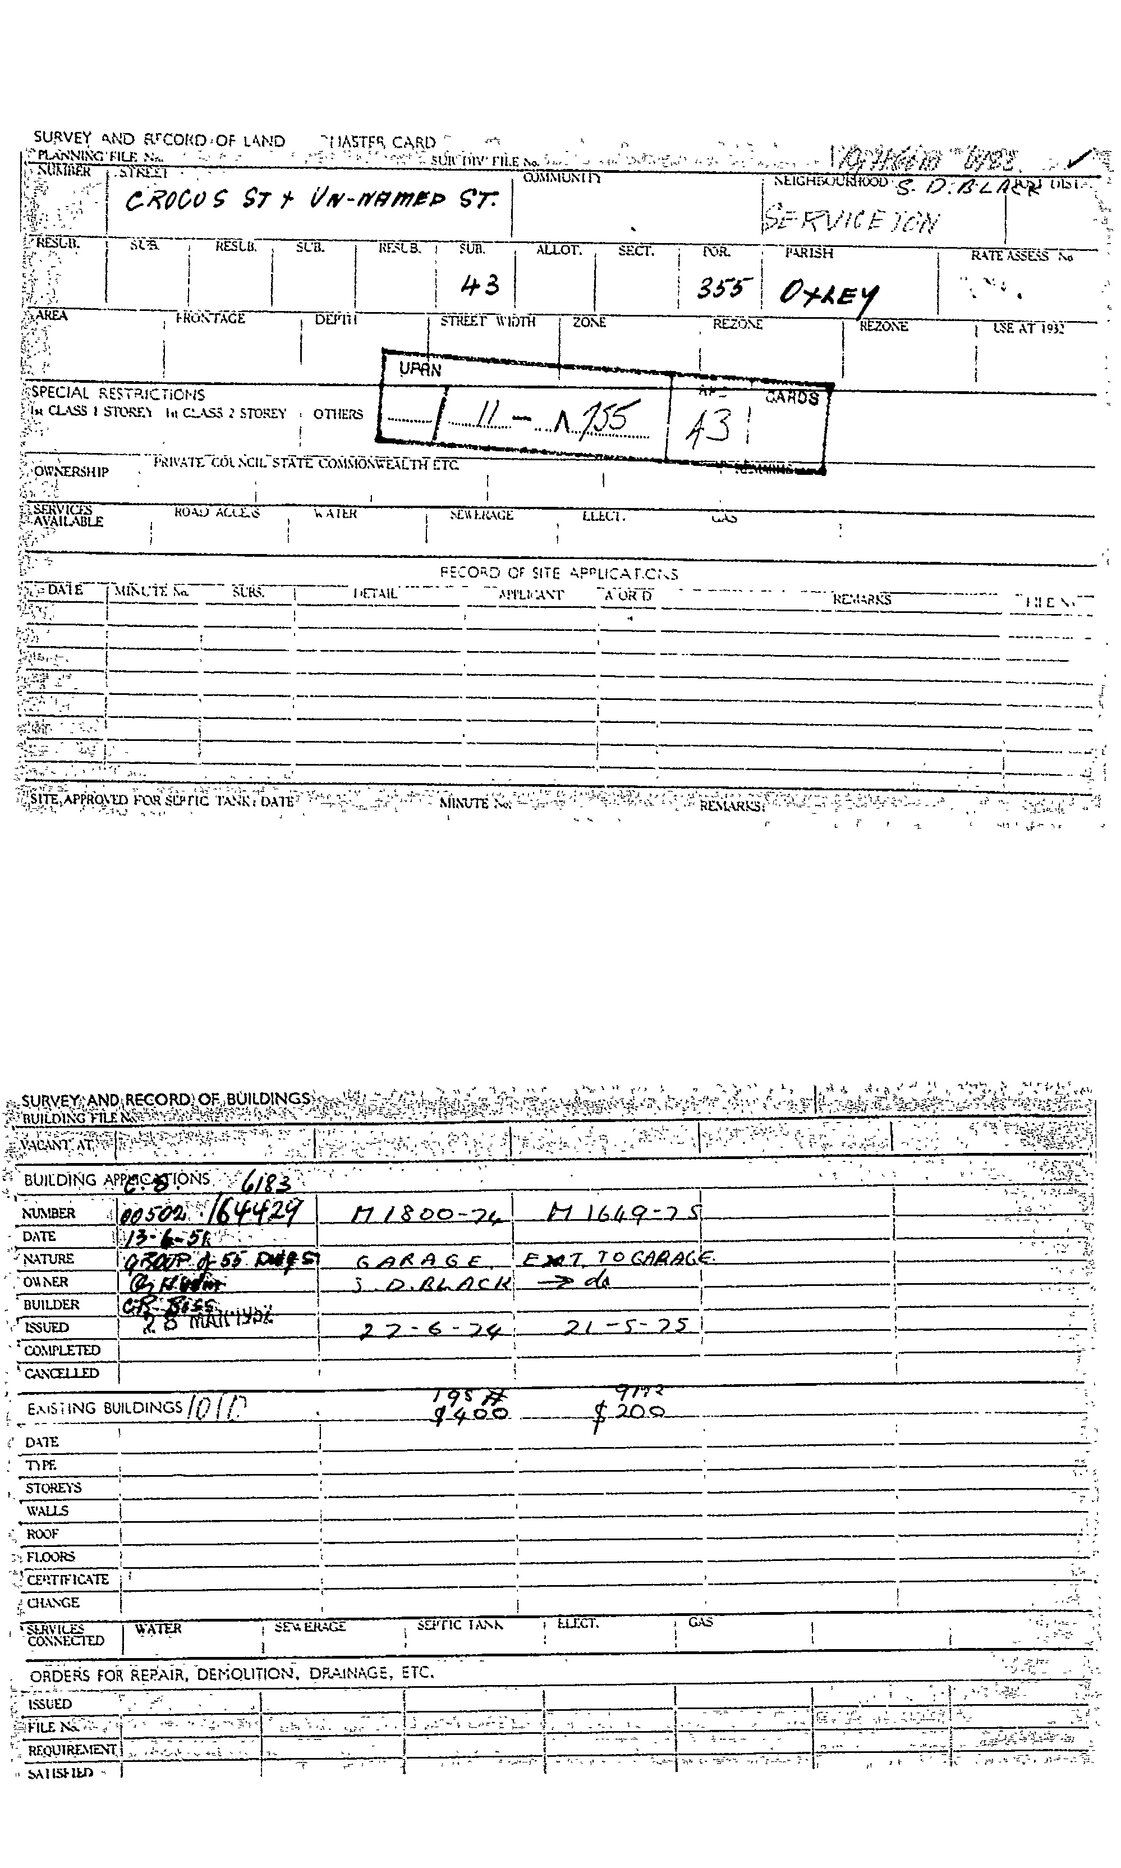 SURVEY AND RECORD OF LAND MASTER CARD
PLANNING FILE No. SUB DIV' FILE No.
NUMBER STREET COMMUNITY NEIGHBOURHOOD S. D. BLACK DIST.
CROCUS ST + UN-NAMED ST. SERVICETON
RESUB. SUB. RESUB. SUB. RESUB. SUB. ALLOT. SECT. POR. PARISH RATE ASSESS No
43 355 OXLEY
AREA FRONTAGE DEPTH STREET WIDTH ZONE REZONE REZONE USE AT 1932
UPRN CARDS
SPECIAL RESTRICTIONS
1st CLASS 1 STOREY 1st CLASS 2 STOREY OTHERS
11 - 755 43
OWNERSHIP PRIVATE COUNCIL STATE COMMONWEALTH ETC.
SERVICES AVAILABLE ROAD ACCESS WATER SEWERAGE ELECT. GAS
RECORD OF SITE APPLICATIONS
DATE MINUTE No. SUBS. DETAIL APPLICANT A OR D REMARKS FILE No
SITE APPROVED FOR SEPTIC TANK: DATE MINUTE No. REMARKS:
SURVEY AND RECORD OF BUILDINGS
BUILDING FILE No.
VACANT AT
BUILDING APPLICATIONS 6183
NUMBER 00502 164429 M1800-74 M1649-75
DATE 13-6-51
NATURE GROUP of 55 GARAGE EXT. TO GARAGE
OWNER S. D. BLACK → do
BUILDER
ISSUED 28 MAR 27-6-74 21-5-75
COMPLETED
CANCELLED
EXISTING BUILDINGS $400 $200
DATE
TYPE
STOREYS
WALLS
ROOF
FLOORS
CERTIFICATE
CHANGE
SERVICES CONNECTED WATER SEWERAGE SEPTIC TANK ELECT. GAS
ORDERS FOR REPAIR, DEMOLITION, DRAINAGE, ETC.
ISSUED
FILE No.
REQUIREMENT
SATISFIED